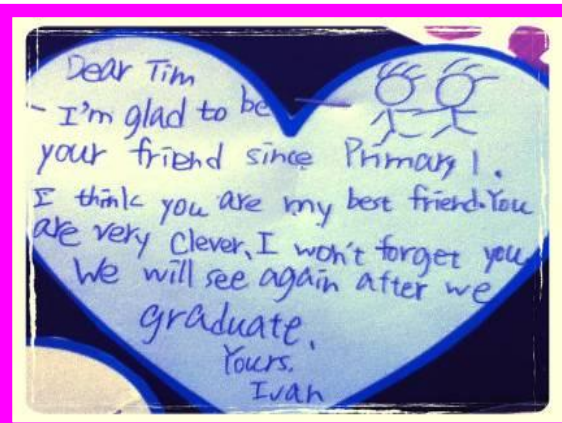 Dear Tim
- I'm glad to be
your friend since Primary 1.
I think you are my best friend. You
are very clever, I won't forget you
We will see again after we
graduate.
Yours.
Ivan